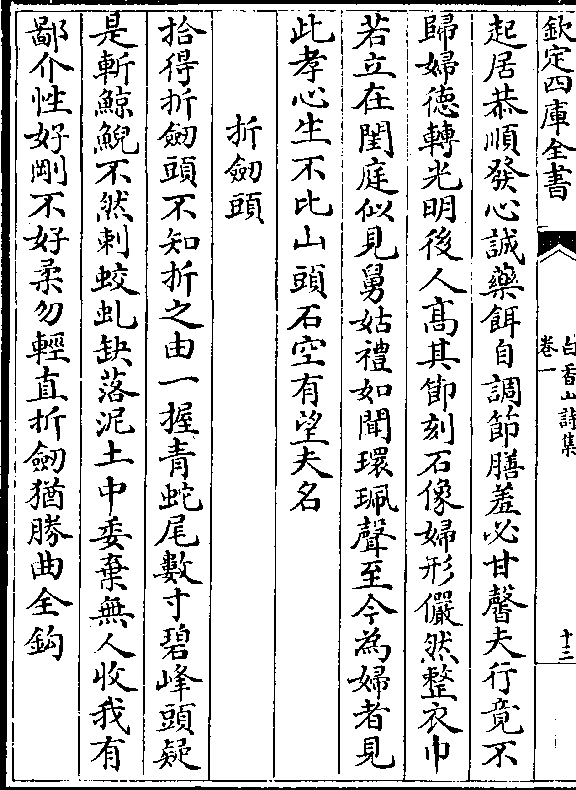 欽定四庫全書
白香山詩集
卷一
十三
起居恭順發心誠藥餌自調節膳羞必甘馨夫行竟不
歸婦德轉光明後人髙其節刻石像婦形儼然整衣巾
若立在閨庭似見舅姑禮如聞環珮聲至今為婦者見
此孝心生不比山頭石空有望夫名
折劒頭
拾得折劒頭不知折之由一握青蛇尾數寸碧峰頭疑
是斬鯨鯢不然刺蛟虬缺落泥土中委棄無人收我有
鄙介性好剛不好柔勿輕直折劒猶勝曲全鈎